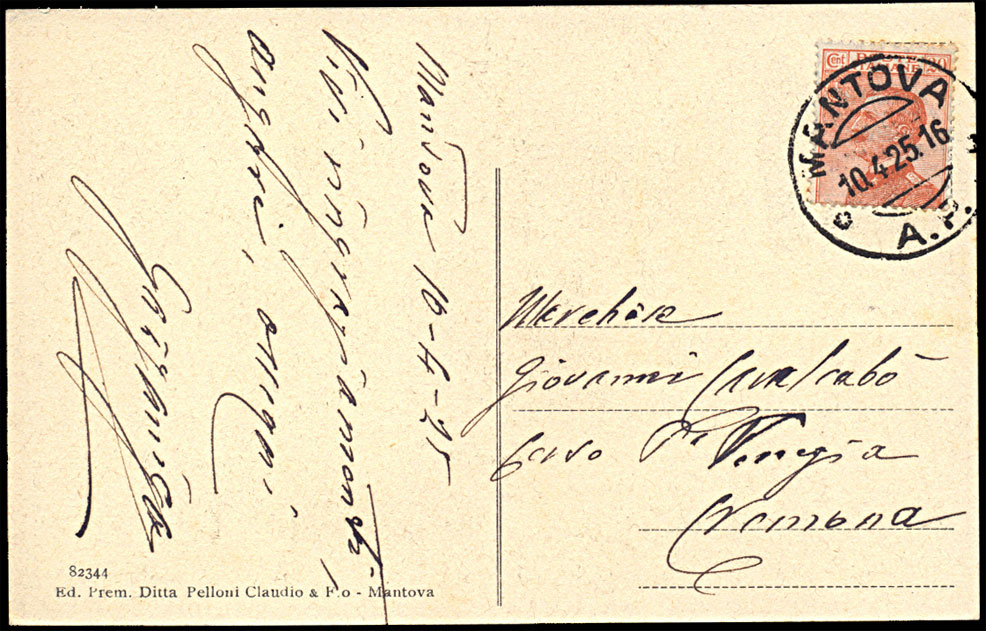 Mantova 10-4-25
Vivi ringraziamenti,
auguri, ossequi.
Marchese
Giovanni Cavalcabò
Corso Pta Venezia
Cremona
MANTOVA
10.4.25.16
A.P.
Cent
82344
Ed. Prem. Ditta Pelloni Claudio & F.o - Mantova